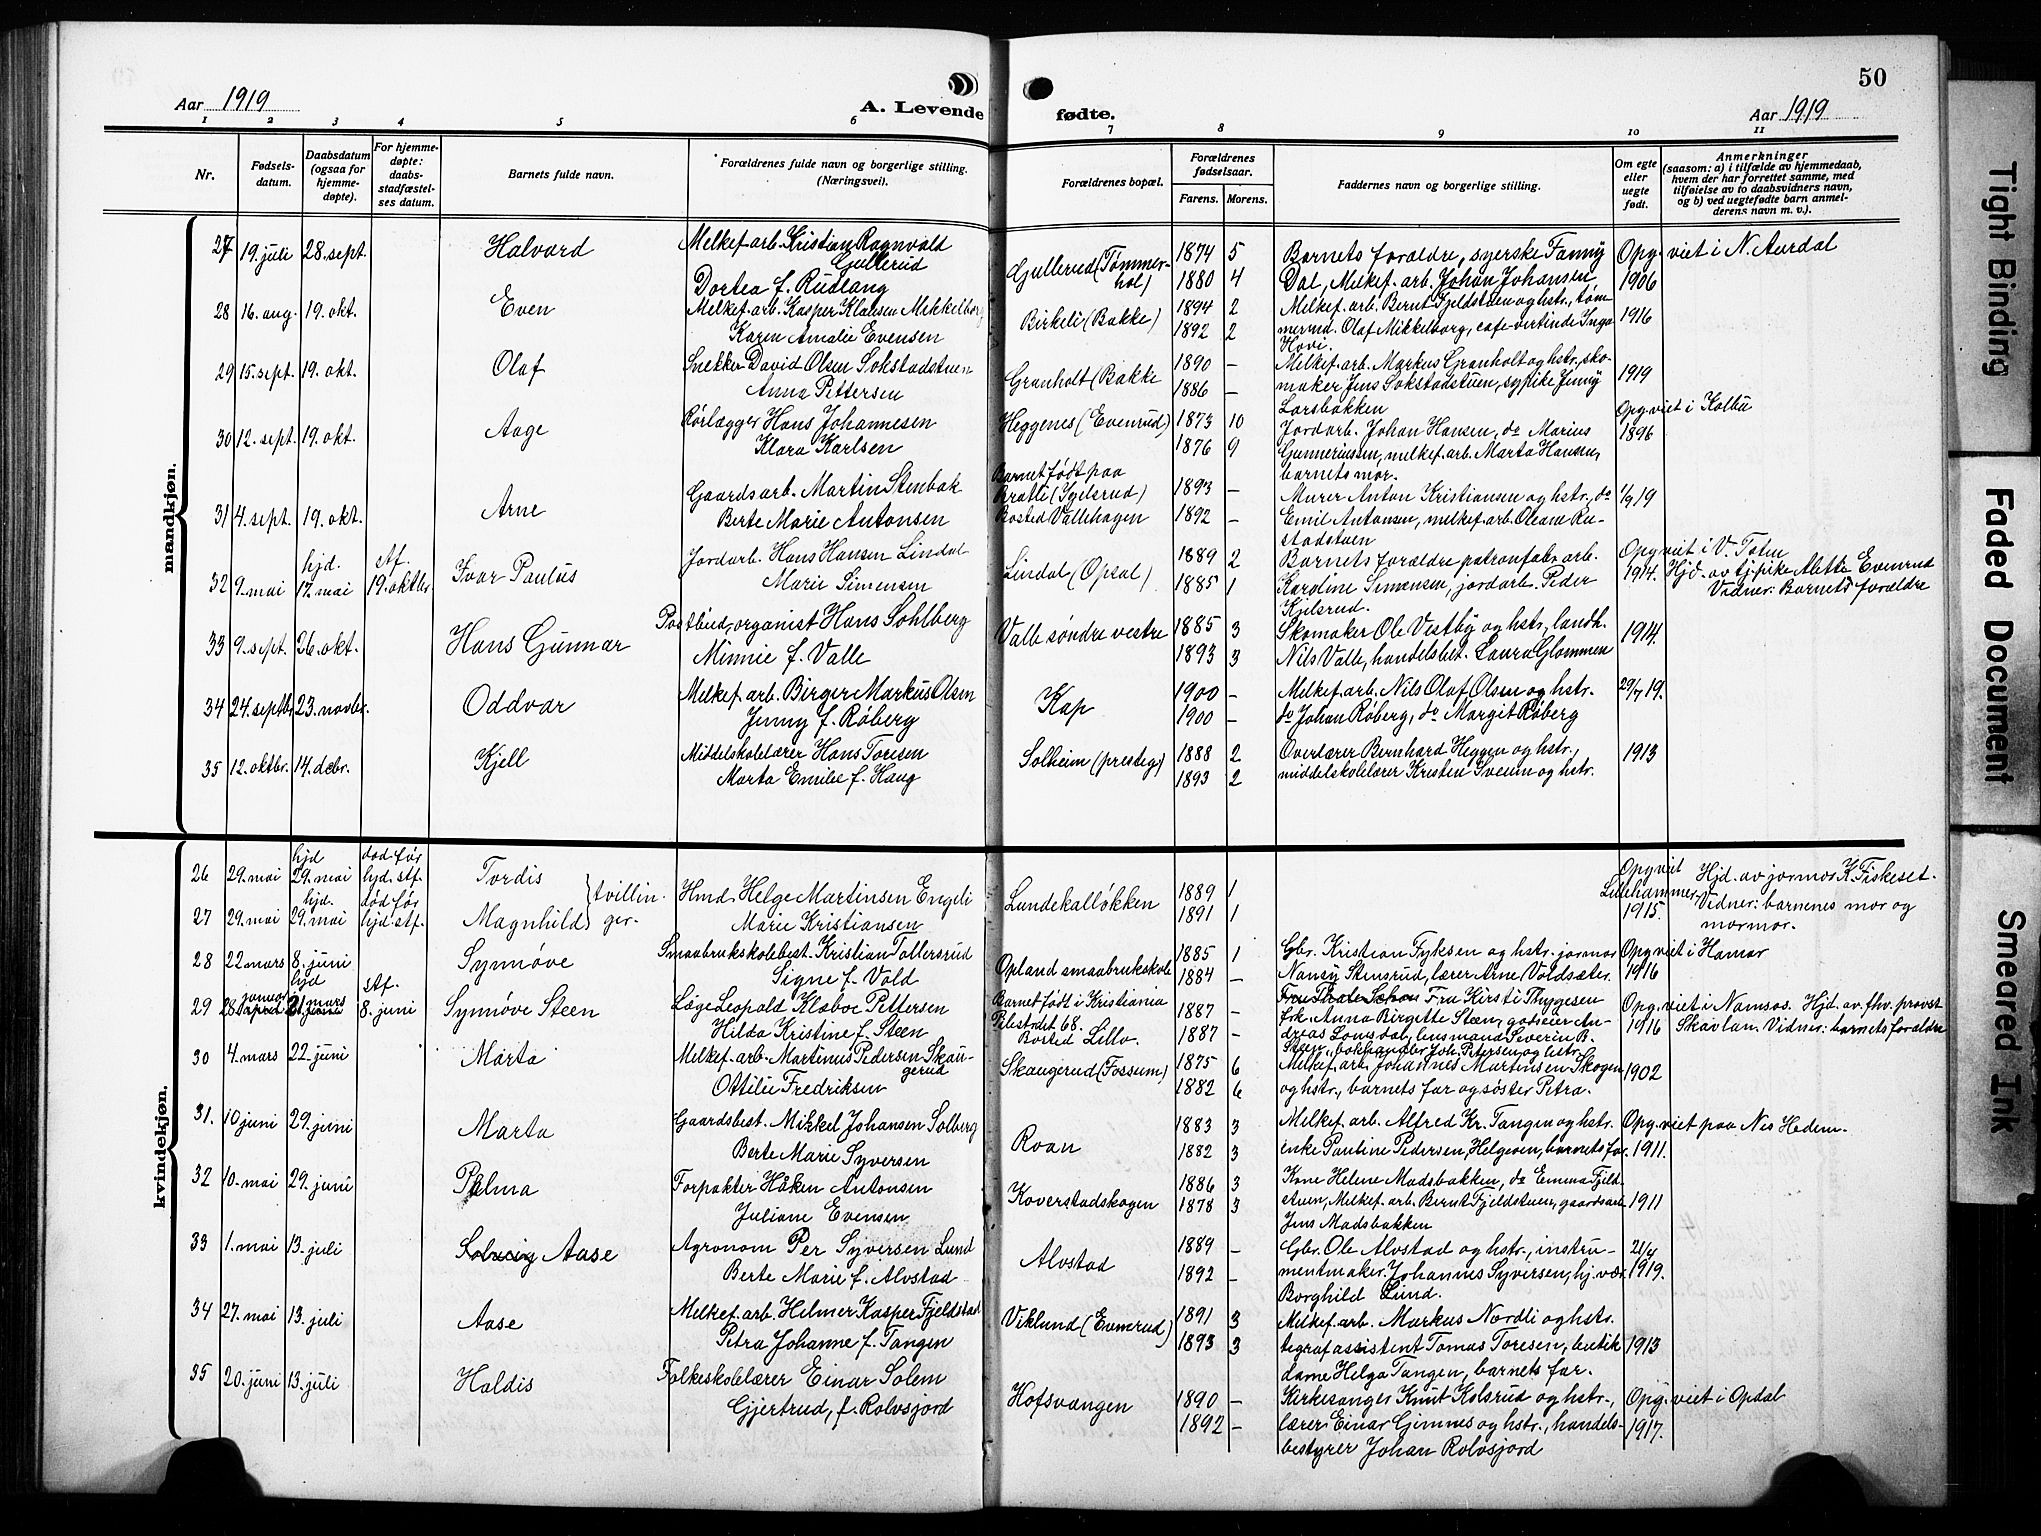 50
Aar 1919
A. Levende
fødte.
Aar 1919
1 2 3 4 5 6 7 8 9 10 11
Nr.
Fødsels-
datum.
Daabsdatum
(ogsaa for
hjemme-
døpte).
For hjemme-
døpte:
daabs-
stadfæstel-
ses datum.
Barnets fulde navn.
Forældrenes fulde navn og borgerlige stilling.
(Næringsvei).
Forældrenes bopæl.
Forældrenes
fødselsaar.
Farens. Morens.
Faddernes navn og borgerlige stilling.
Om egte
eller
uegte
født.
Anmerkninger
(saasom: a) i tilfælde av hjemmedaab,
hvem der har forrettet samme, med
tilføielse av to daabsvidners navn,
og b) ved uegtefødte barn anmel-
derens navn m. v.).
mandkjøn.
27 19. juli 28. sept. Halvard
Melkef. arb. Kristian Ragnvald
Gullerud
Dortea f. Rudlang
Gullerud (Tømmer-
hol)
1874 5
1880 4
Barnets forældre, syerske Fanny
Dal, Melkef. arb. Johan Johansen
Opg. viet i N. Aurdal
1906
28 16. aug. 19. okt. Even
Melkef. arb. Kasper Klausen Mikkelborg
Karen Amalie Evensen
Birkeli (Bakke)
1894 2
1892 2
Melkef. arb. Bernt Fjeldstuen og hstr., tøm
mermd. Olaf Mikkelborg, cafe-vertinde Inga
Hovi.
1916
29 15. sept. 19. okt. Olaf
Snekker David Olsen Sokstadstuen
Anna Pettersen
Granholt (Bakke
1890 –
1886 –
Melkef. arb. Markus Granholt og hstr., sko-
maker Jens Sokstadstuen, sypike Jenny
Larsbakken
1919
30 12. sept. 19. okt. Aage
Rørlægger Hans Johannesen
Klara Karlsen
Heggenes (Evenrud)
1873 10
1876 9
Jordarb. Johan Hansen, do Marius
Gunneriussen, melkef. arb. Marta Hansen,
barnets mor.
Opg. viet i Kolbu
1896
31 4. sept. 19. okt. Arne
Gaardsarb. Martin Stenbak
Berte Marie Antonsen
Barnet født paa
Bratli (Igelsrud)
Bosted Vallehagen
1893 –
1892 –
Murer Anton Kristiansen og hstr., do
Emil Antonsen, melkef. arb. Oleane Ru-
stadstuen
1/9 19
32 9. mai hjd. 17. mai stf. 19. oktbr. Ivar Paulus
Jordarb. Hans Hansen Lindal
Marie Simensen
Lindal (Opsal)
1889 2
1885 1
Barnets forældre patronfabr. arb.
Karoline Simensen, jordarb. Peder
Kjelsrud.
Opg. viet i V. Toten
1914. Hjd. av tj.pike Alette Evenrud
Vidner: Barnets forældre
33 9. sept. 26. okt. Hans Gunnar
Postbud, organist Hans Sohlberg
Minnie f. Valle
Valle søndre vestre
1885 3
1893 3
Skomaker Ole Vestby og hstr., landh.
Nils Valle, handelsbet. Laura Glommen
1914.
34 24. septbr. 23. novbr. Oddvar
Melkef. arb. Birger Markus Olsen
Jenny f. Røberg
Kap
1900 –
1900 –
Melkef. arb. Nils Olaf Olsen og hstr.
do Johan Røberg, do Margit Røberg
29/7 19.
35 12. oktbr. 14. debr. Kjell
Middelskolelærer Hans Toresen
Marta Emilie f. Haug
Solheim (presteg)
1888 2
1893 2
Overlærer Bernhard Heggen og hstr.,
middelskolelærer Kristen Sveum og hstr.
1913
kvindekjøn.
26 29. mai hjd 29. mai død før hjd. stf. Tordis
27 29. mai hjd. 29. mai død før hjd stf. Magnhild
tvillin
ger.
Hmd. Helge Martinsen Engeli
Marie Kristiansen
Lundekalløkken
1889 1
1891 1
Opg viet
Lillehammer
1915.
Hjd. av jormor K. Fiskeset.
Vidner: barnenes mor og
mormor.
28 22 mars 8. juni Synnøve
Smaabrukskolebest. Kristian Tollersrud
Signe f. Vold
Opland smaabrukskole
1885 1
1884 –
Gbr. Kristian Fykesen og hstr. jormor
Nansy Stensrud, lærer Arne Voldsæter.
Opg viet i Hamar
1916
29 28. januar hjd 21. mars stf. 8. juni Synnøve Steen
Læge Leopold Klæboe Pettersen
Hilda Kristine f. Steen
Barnet født i Kristiania
Pilestrdet 68.
Bosted Lillo.
1887 –
1887 –
Fru Kirsti Thygesen
frk. Anna Birgitte Steen, godseier An-
dreas Lonsdal, lensmand Severin B.
Steen, bokhandler Joh. Petersen og hstr.
Opg. viet i Namsos. Hjd. av fhv. provst
1916 Skavlan. Vidner: barnets forældre
30 4. mars 22. juni Marta
Melkef. arb. Martinus Pedersen Skau-
gerud
Ottilie Fredriksen
Skaugerud (Fossum)
1875 6
1882 6
Melkef. arb. Johannes Martinsen Skogen
og hstr., barnets far og søster Petra.
1902
31. 10 juni 29. juni Marta
Gaardsbest. Mikkel Johansen Solberg
Berte Marie Syversen
Roan
1883 3
1882 3
Melkef. arb. Alfred Kr. Tangen og hstr.
enke Pauline Pedersen, Helgeven, barnets far.
Opg. viet paa Nes Hedem.
1911.
32 10. mai 29. juni Palma
Forpakter Håken Antonsen
Juliane Evensen
Koverstadskogen
1886 3
1878 3
Kone Helene Madsbakken, do Emma Fjeld-
stuen, Melkef. arb. Bernt Fjeldstuen, gaardsarb
Jens Madsbakken
1911
33 1. mai 13. juli Solveig Aase
Agronom Per Syversen Lund
Berte Marie f. Alvstad
Alvstad
1889 –
1892 –
Gbr. Ole Alvstad og hstr., instru-
mentmaker Johannes Syversen, hj. vær.
Borghild Lund.
21/4
1919.
34 27. mai 13. juli Aase
Melkef. arb. Helmer Kasper Fjeldstad
Petra Johanne f. Tangen
Viklund (Evenrud)
1891 3
1893 3
Melkef. arb. Markus Nordli og hstr.
tlgrafassistent Tomas Toresen, butik
dame Helga Tangen, barnets far.
1913
35 20. juni 13. juli Haldis
Folkeskolelærer Einar Solem
Gjertrud, f. Rolvsjord
Hofsvangen
1890 –
1892 –
Kirkesanger Knut Kolsrud og hstr.,
lærer Einar Gimnes og hstr., handels-
bestyrer Johan Rolvsjord
Opg. viet i Opdal
1917.
Tight Binding
Faded Document
Smeared Ink